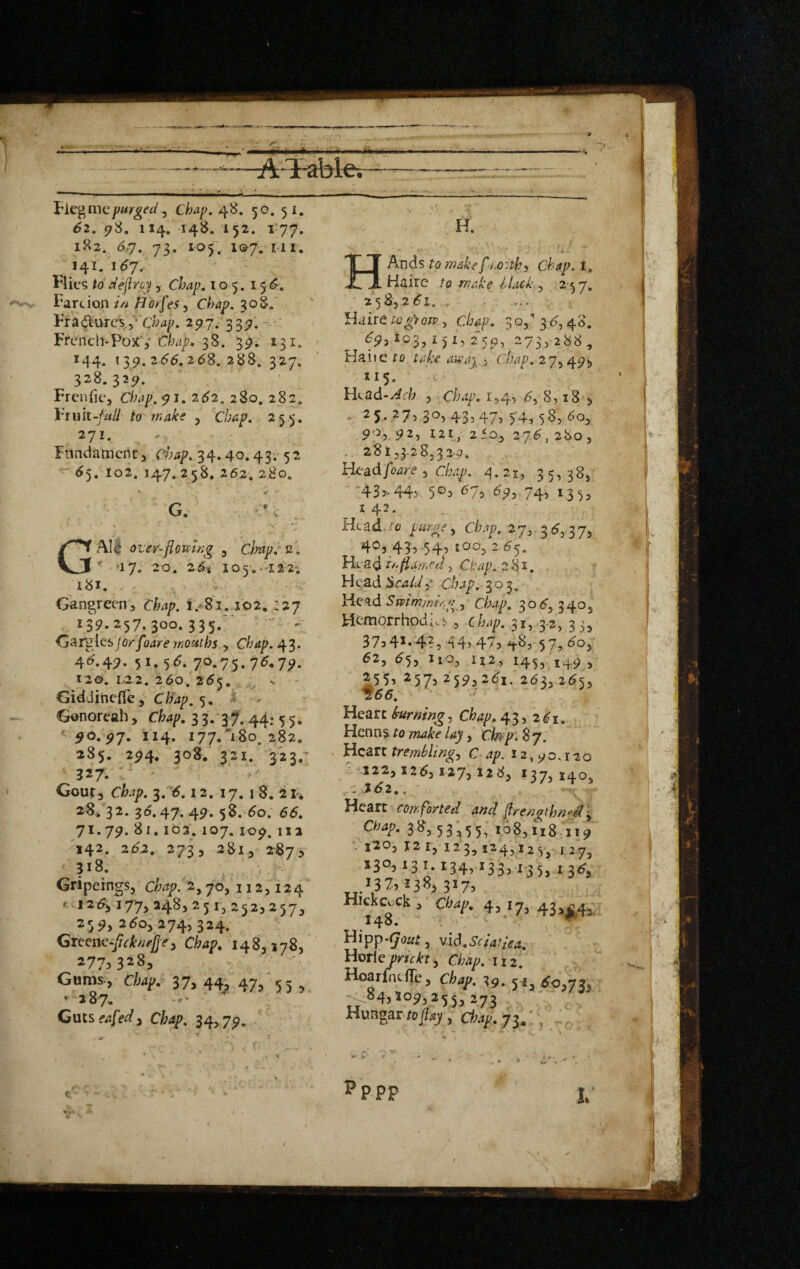 A Table.
Flegme purged, Chap. 48. 50. 51.
62. 98. 114. 148. 152. 177.
182. 67. 73. 105. 107. 111.
141. 167.
Flies to destroy, Chap. 105. 156.
Farcion in Horses, Chap. 308.
Fractures, Chap. 297. 339.
French-Pox, Chap. 38. 39. 131.
144. 139. 266. 268. 288. 327.
328. 329.
Frensie, Chap. 91. 262. 280. 282.
Fruit-full to make, Chap. 255.
271.
Fundament, Chap. 34. 40. 43. 52
65. 102. 147. 258. 262. 280.
G.
GAll over-flowing, Chap. 2.
17. 20. 26. 105. 122.
181.
Gangreen, Chap. 1. 81. 102. 127
139. 257. 300. 335.
Gargles for soare mouths, Chap. 43.
46. 49. 51. 56. 70. 75. 76. 79.
120. 122. 260. 265.
Giddinesse, Chap. 5.
Gonoreah, Chap. 33. 37. 44. 55.
90. 97. 114. 177. 180. 282.
285. 294. 308. 321. 323.
327.
Gout, Chap. 3. 6. 12. 17. 18. 21.
28. 32. 36. 47. 49. 58. 60. 66.
71. 79. 81. 102. 107. 109. 112
142. 262. 273, 281, 287,
318.
Gripeings, Chap. 2, 70, 112, 124
126, 177, 248, 251, 252, 257,
259, 260, 274, 324.
Greene-sicknesse, Chap. 148, 178,
277, 328,
Gums, Chap. 37, 44, 47, 55,
287.
Guts eased, Chap. 34, 79.
H.
HAnds to make smooth, Chap. 1,
Haire to make black, 257.
258, 261.
Haire to grow, Chap. 30, 36, 48.
69, 103, 151, 259, 273, 288,
Haire to take away, Chap. 27, 49,
115.
Head-Ach, Chap. 1, 4, 6, 8, 18,
25. 27, 30, 43, 47, 54, 58, 60,
90, 92, 121, 250, 276, 280,
281, 328, 329.
Head soare, Chap. 4. 21, 35, 38,
43, 44, 50, 67, 69, 74, 135,
142.
Head to purge, Chap. 27, 36, 37,
40, 43, 54, 100, 265.
Head inflamed, Chap. 281.
Head Scald, Chap. 303.
Head Swimming, Chap. 306, 340,
Hemorrhodies, Chap. 31, 32, 33,
37, 41. 42, 44, 47, 48, 57, 60,
62, 65, 110, 112, 145, 149,
255, 257, 259, 261. 263, 265,
266.
Heart burning, Chap. 43, 261.
Henns to make lay, Chap. 87.
Heart trembling, C ap. 12, 90, 120
122, 126, 127, 128, 137, 140,
162.
Heart comforted and strengthned,
Chap. 38, 53, 55, 108, 118 119
120, 121, 123, 124, 125, 127,
130, 131. 134, 133, 135, 136,
137, 138, 317,
Hickcock, Chap. 4, 17, 43, 64,
148.
Hipp-Gout, vid. Sciatica.
Horse prickt, Chap. 112.
Hoarsnesse, Chap. 39. 51, 60, 73,
84, 109, 255, 273
Hungar to stay, Chap. 73.
Pppp
I.